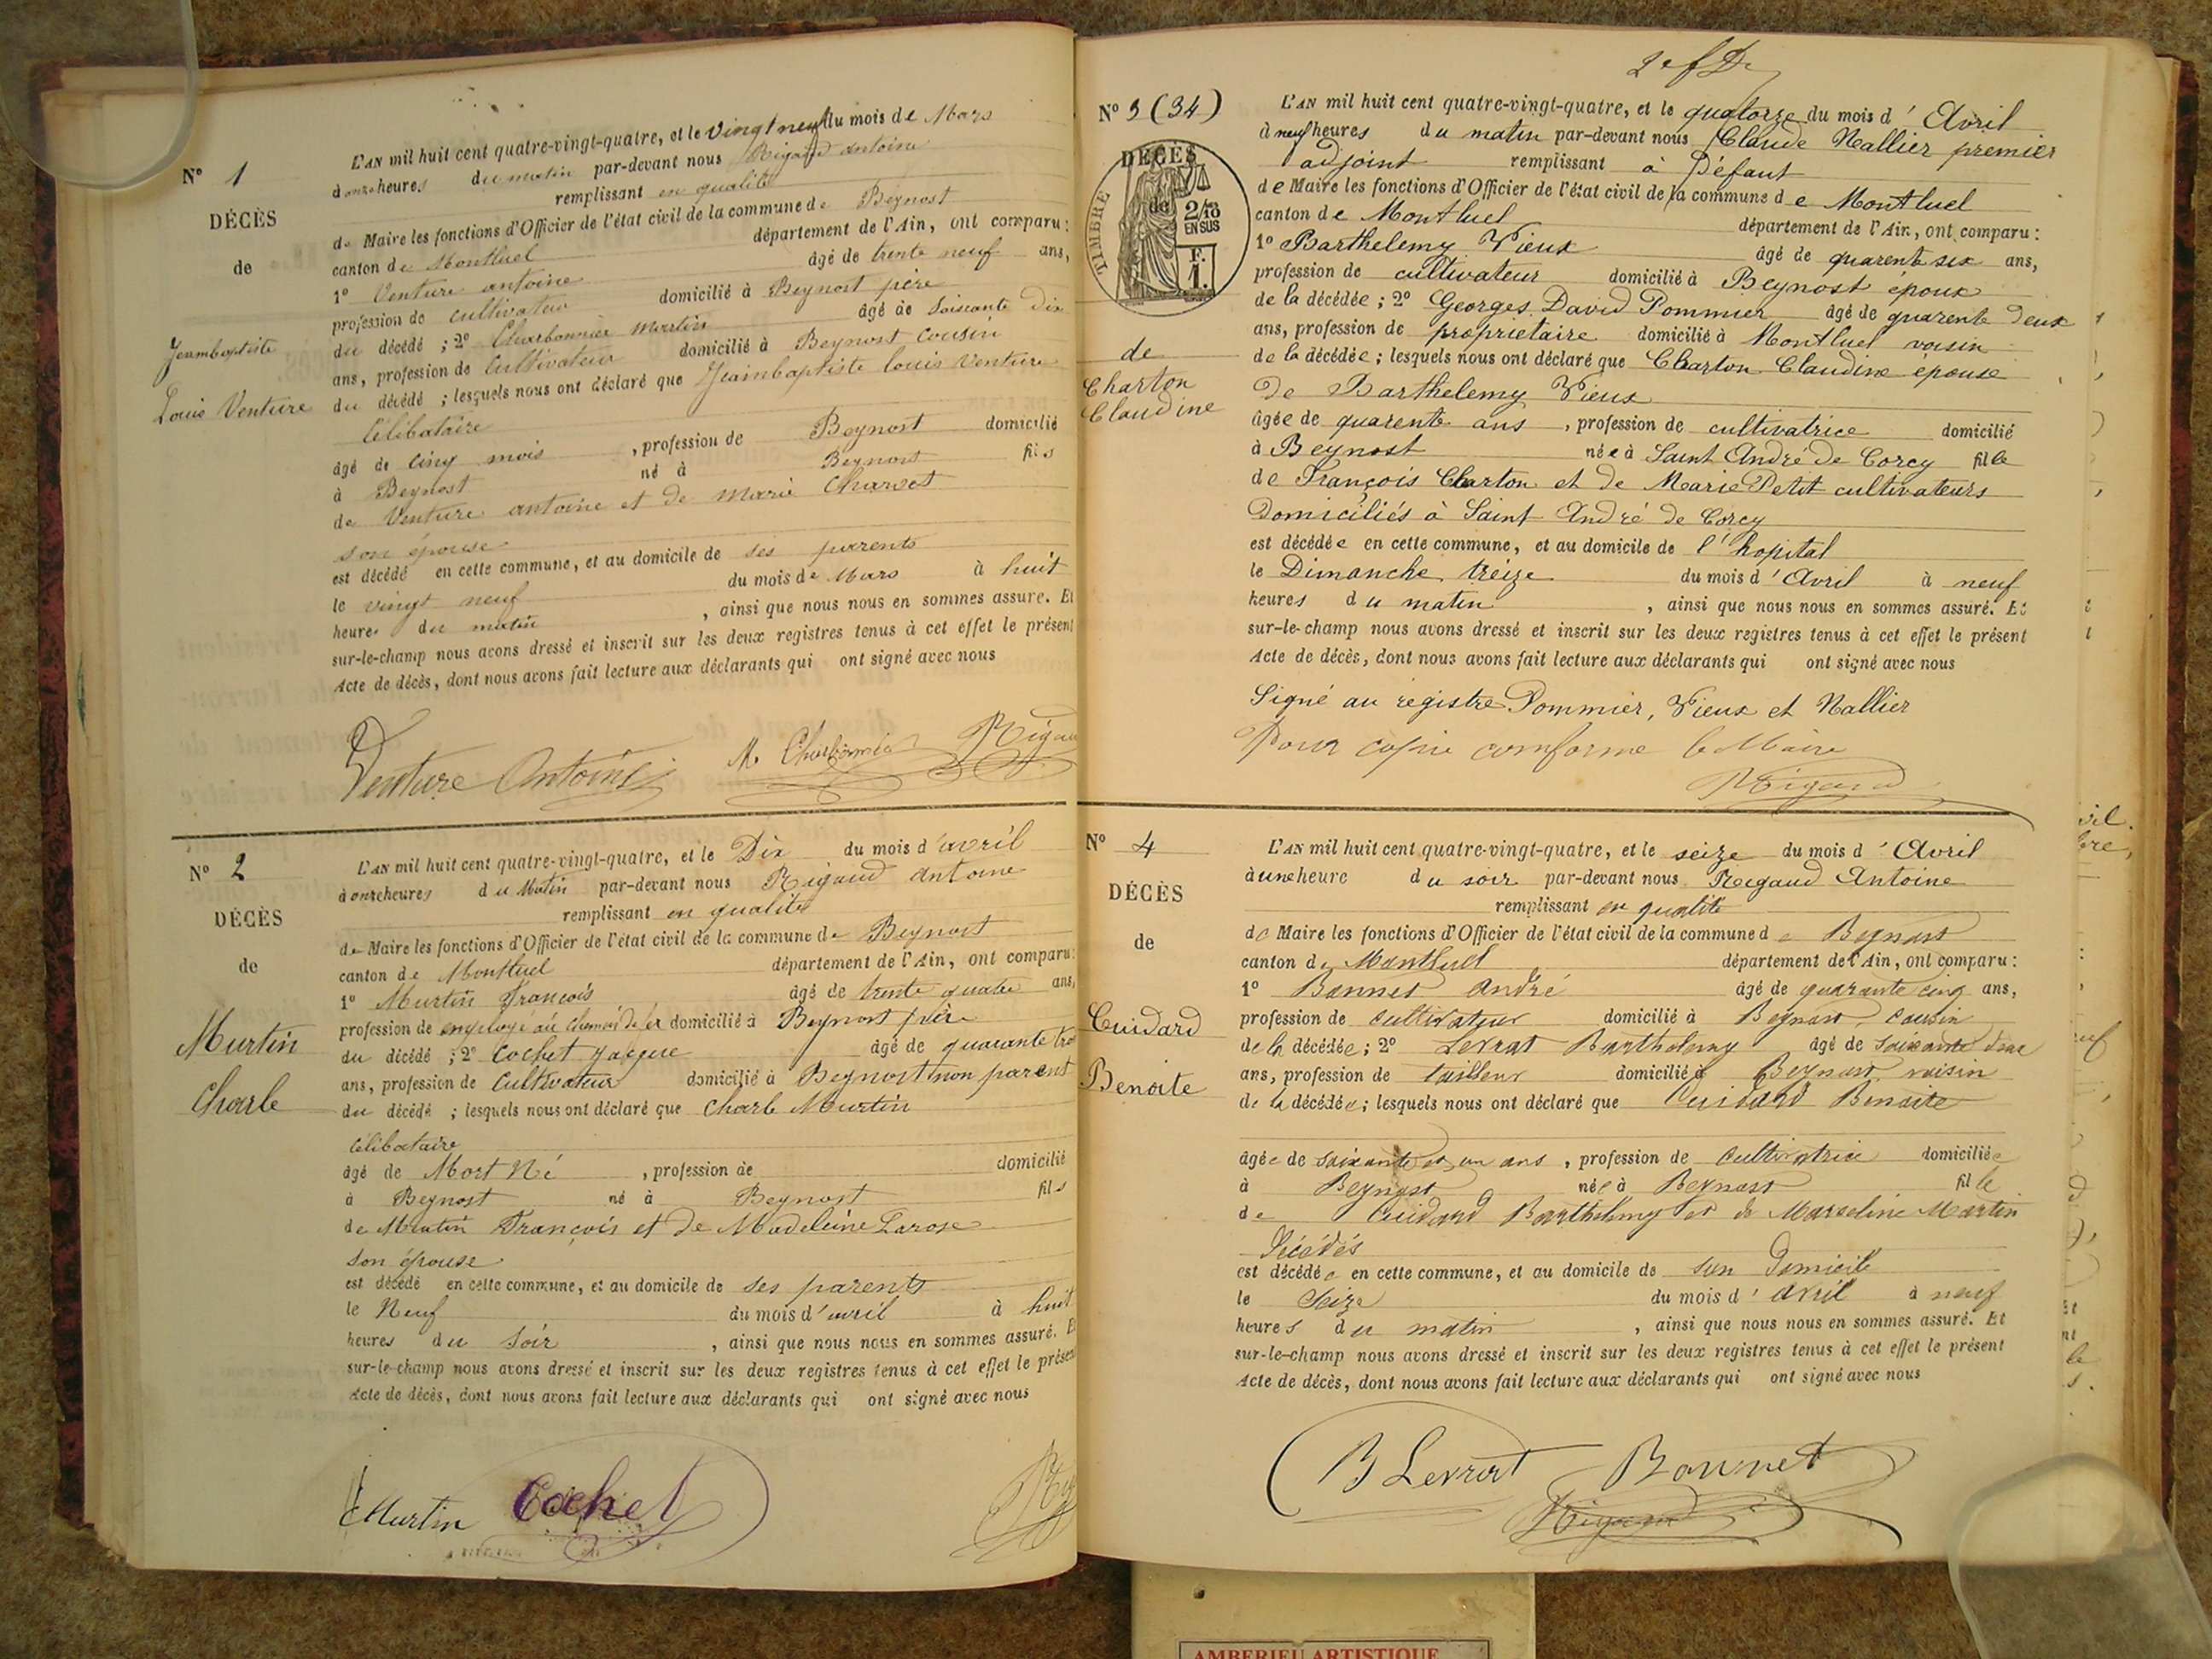 Nº 1
DÉCÈS
de
Jeanbaptiste
Louis Venture
L'AN mil huit cent quatre-vingt-quatre, et le vingt neuf du mois de Mars
à onze heures du matin par-devant nous Rigaud antoine
remplissant en qualité
de Maire les fonctions d'Officier de l'état civil de la commune de Beynost
canton de Montluel département de l'Ain, ont comparu:
1º Venture antoine âgé de trente neuf ans,
profession de cultivateur domicilié à Beynost père
du décédé ; 2º Charbonnier Martin âgé de Soixante dix
ans, profession de Cultivateur domicilié à Beynost Cousin
du décédé ; lesquels nous ont déclaré que Jeainbaptiste louis Venture
Célibataire
âgé de cinq mois , profession de Beynost domicilié
à Beynost né à Beynost fils
de Venture antoine et de marie Charvet
son épouse
est décédé en cette commune, et au domicile de ses parents
le vingt neuf du mois de Mars à huit
heures du matin , ainsi que nous nous en sommes assuré. Et
sur-le-champ nous avons dressé et inscrit sur les deux registres tenus à cet effet le présent
Acte de décès, dont nous avons fait lecture aux déclarants qui ont signé avec nous
Venture Antoine M. Charbonnié Rigau
Nº 2
DÉCÈS
de
Martin
Charle
L'AN mil huit cent quatre-vingt-quatre, et le Dix du mois d'avril
à onze heures du Matin par-devant nous Rigaud Antoine
remplissant en qualité
de Maire les fonctions d'Officier de l'état civil de la commune de Beynost
canton de Montluel département de l'Ain, ont comparu:
1º Martin François âgé de trente quatre ans,
profession de employé au chemin de fer domicilié à Beynost père
du décédé ; 2º Cochet Jacque âgé de quarante tro
ans, profession de Cultivateur domicilié à Beynost non parent
du décédé ; lesquels nous ont déclaré que Charle Martin
Célibataire
âgé de Mort Né , profession de domicilié
à Beynost né à Beynost fils
de Martin François et de Madeleine Larose
Son épouse
est décédé en cette commune, et au domicile de ses parents
le Neuf du mois d'avril à huit
heures du Soir , ainsi que nous nous en sommes assuré. E
sur-le-champ nous avons dressé et inscrit sur les deux registres tenus à cet effet le présen
Acte de décès, dont nous avons fait lecture aux déclarants qui ont signé avec nous
Martin Cochet Rig
Nº 3 (34)
TIMBRE
DÉCÈS
de
2/10
EN SUS
F.
1.
de
Charton
Claudine
L'AN mil huit cent quatre-vingt-quatre, et le quatorze du mois d'Avril
à neuf heures du matin par-devant nous Claude Nallier premier
adjoint remplissant à Défaut
de Maire les fonctions d'Officier de l'état civil de la commune de Montluel
canton de Montluel département de l'Ain, ont comparu:
1º Barthelemy Vieux âgé de quarente six ans,
profession de cultivateur domicilié à Beynost époux
de la décédée ; 2º Georges David Pommier âgé de quarente deux
ans, profession de propriétaire domicilié à Montluel voisin
de la décédée ; lesquels nous ont déclaré que Charton Claudine épouse
de Barthelemy Vieux
âgée de quarente ans , profession de cultivatrice domicilié
à Beynost née à Saint André de Corcy fille
de François Charton et de Marie Petit cultivateurs
Domiciliés à Saint André de Corcy
est décédée en cette commune, et au domicile de l'hopital
le Dimanche treize du mois d'Avril à neuf
heures du matin , ainsi que nous nous en sommes assuré. Et
sur-le-champ nous avons dressé et inscrit sur les deux registres tenus à cet effet le présent
Acte de décès, dont nous avons fait lecture aux déclarants qui ont signé avec nous
Signé au registre Pommier, Vieux et Nallier
Pour copie comforme le Maire
Rigaud
Nº 4
DÉCÈS
de
Cuidard
Benoite
L'AN mil huit cent quatre-vingt-quatre, et le seize du mois d'Avril
à une heure du soir par-devant nous Rigaud Antoine
remplissant en qualité
de Maire les fonctions d'Officier de l'état civil de la commune de Beynost
canton de Montluel département de l'Ain, ont comparu:
1º Bonnet André âgé de quarante cinq ans,
profession de Cultivateur domicilié à Beynost, Cousin
de la décédée ; 2º Levrat Barthelemy âgé de soixante deux
ans, profession de tailleur domicilié à Beynost voisin
de la décédée ; lesquels nous ont déclaré que Cuidard Benoite
âgée de soixante et un ans , profession de Cultivatrice domiciliée
à Beynost née à Beynost fille
de Cuidard Barthélemy et de Marseline Martin
Décédés
est décédée en cette commune, et au domicile de son Domicile
le Seize du mois d'Avril à neuf
heures du matin , ainsi que nous nous en sommes assuré. Et
sur-le-champ nous avons dressé et inscrit sur les deux registres tenus à cet effet le présent
Acte de décès, dont nous avons fait lecture aux déclarants qui ont signé avec nous
B Levrat Bonnet
Rigaud
AMBERIEU ARTISTIQUE